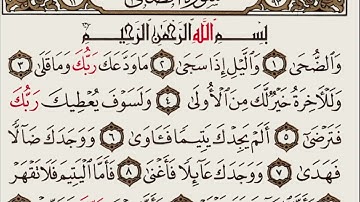 بِسْمِ اللَّهِ الرَّحْمَٰنِ الرَّحِيمِ
وَالضُّحَىٰ ١ وَاللَّيْلِ إِذَا سَجَىٰ ٢ مَا وَدَّعَكَ رَبُّكَ وَمَا قَلَىٰ ٣
وَلَلْآخِرَةُ خَيْرٌ لَّكَ مِنَ الْأُولَىٰ ٤ وَلَسَوْفَ يُعْطِيكَ رَبُّكَ
فَتَرْضَىٰ ٥ أَلَمْ يَجِدْكَ يَتِيمًا فَآوَىٰ ٦ وَوَجَدَكَ ضَالًّا
فَهَدَىٰ ٧ وَوَجَدَكَ عَائِلًا فَأَغْنَىٰ ٨ فَأَمَّا الْيَتِيمَ فَلَا تَقْهَرْ